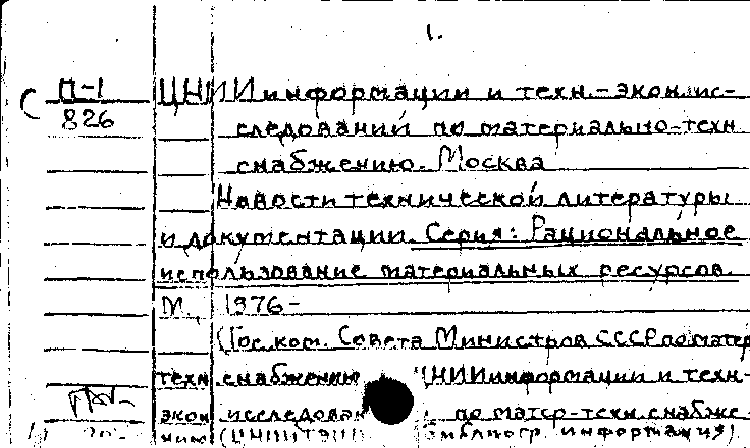 1.
С П-1 ЦНИИинформации и техн.-экон.ис-
826 следований по материально-техн
снабжению. Москва
Новости технической литературы
и документации. Серия: Рациональное
использование материальных ресурсов.
М., 1976-
(Гос.ком. Совета Министров СССР по матер
техн.снабжению ЦНИИинформации и техн-
экон.исследован по матер-техн.снабже
нию